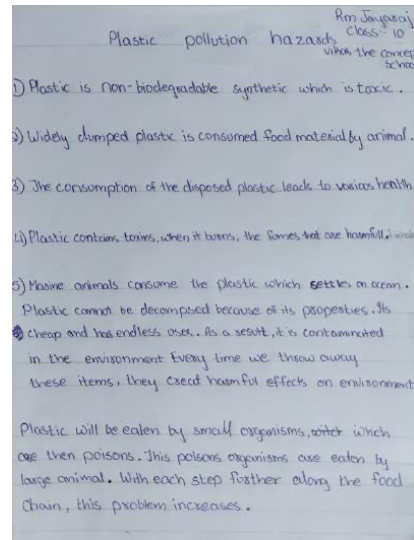 Rm Jayaraj
Class:- 10
Plastic pollution hazards
vikas the concept
School
1) Plastic is non-biodegradable synthetic which is toxic.
2) Widely dumped plastic is consumed food material by animal.
3) The consumption of the disposed plastic leads to various health
4) Plastic contains toxins, when it burns, the fumes that are harmfull.
5) Marine animals consume the plastic which settles on ocean.
Plastic cannot be decomposed because of its properties. Its
cheap and has endless uses. As a result, it is contaminated
in the environment Every time we throw away
these items, they creat harmful effects on environment
Plastic will be eaten by small organisms, which
are then poisons. This poisons organisms are eaten by
large animal. With each step further along the food
chain, this problem increases.